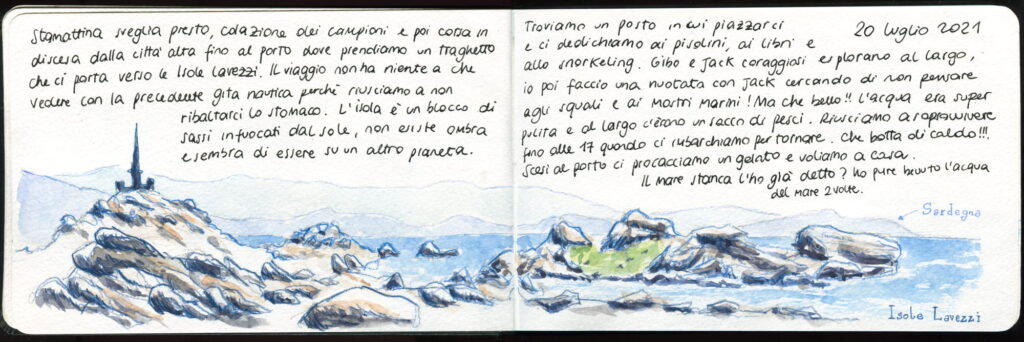 Stamattina sveglia presto, colazione dei campioni e poi corsa in
discesa dalla città alta fino al porto dove prendiamo un traghetto
che ci porta verso le Isole Lavezzi. Il viaggio non ha niente a che
vedere con la precedente gita nautica perché riusciamo a non
ribaltarci lo stomaco. L'isola è un blocco di
sassi infuocati dal sole, non esiste ombra
e sembra di essere su un altro pianeta.
20 luglio 2021
Troviamo un posto in cui piazzarci
e ci dedichiamo ai pisolini, ai libri e
allo snorkeling. Gibo e Jack coraggiosi esplorano al largo,
io poi faccio una nuotata con Jack cercando di non pensare
agli squali e ai mostri marini! Ma che bello!! L'acqua era super
pulita e al largo c'erano un sacco di pesci. Riusciamo a sopravvivere
fino alle 17 quando ci rimbarchiamo per tornare. Che botta di caldo!!!
Scesi al porto ci procacciamo un gelato e voliamo a casa.
Il mare stanca l'ho già detto? Ho pure bevuto l'acqua
del mare 2 volte.
Sardegna
Isole Lavezzi